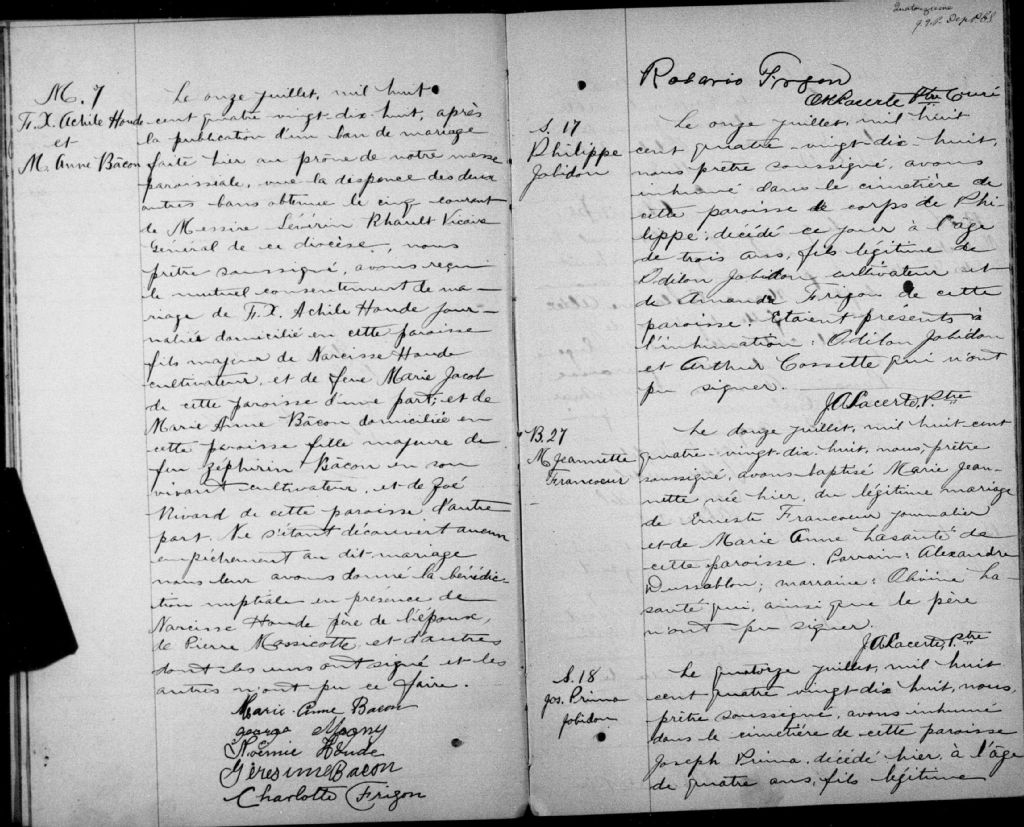 M. 7
F. X. Achile Houde
et
M. Anne Bacon
Le onze juillet, mil huit
cent quatre vingt-dix-huit, après
la publication d'un ban de mariage
faite hier au prône de notre messe
paroissiale, vue la dispence des deux
autres bans obtenue le cinq courant
de Messire Sévérin Rhault Vicaire
Général de ce diocèse, nous
prêtre soussigné, avons reçu
le mutuel consentement de ma-
riage de F. X. Achile Houde jour-
nalier domicilié en cette paroisse
fils majeur de Narcisse Houde
cultivateur, et de feue Marie Jacob
de cette paroisse d'une part; et de
Marie Anne Bacon domiciliée en
cette paroisse fille majeure de
feu Zéphirin Bacon en son
vivant cultivateur, et de Zoé
Rivard de cette paroisse d'autre
part. Ne s'étant découvert aucun
empêchement au dit mariage
nous leur avons donné la bénédic-
tion nuptiale en presence de
Narcisse Houde père de l'époux,
de Pierre Massicotte, et d'autres
dont les uns ont signé et les
autres n'ont pu ce faire.
Marie-Anne Bacon
George Magny
Noémie Houde
Géresime Bacon
Charlotte Frigon
Quatorzieme
Rosario Frigon
Ptre Curé
S. 17
Philippe
Jobidon
Le onze juillet, mil huit
cent quatre-vingt-dix-huit,
nous prêtre soussigné, avons
inhumé dans le cimetière de
cette paroisse le corps de Phi-
lippe, décédé ce jour à l'âge
de trois ans, fils légitime de
Odilon Jobidon cultivateur et
de Amanda Frigon de cette
paroisse. Etaient presents à
l'inhumation: Odilon Jobidon
et Arthur Cossette qui n'ont
pu signer.
J A Lacerte, Ptre
B. 27
M. Jeannette
Francoeur
Le douze juillet, mil huit cent
quatre-vingt-dix-huit, nous, prêtre
soussigné, avons baptisé Marie Jean-
nette née hier, du légitime mariage
de Erneste Francoeur journalier
et de Marie Anne Lasanté de
cette paroisse. Parrain: Alexandre
Dussablon; marraine: La-
santé qui, ainsi que le père
n'ont pu signer.
J A Lacerte, Ptre
S. 18
Jos. Prima
Jobidon
Le quatorze juillet, mil huit
cent quatre vingt dix huit, nous,
prêtre soussigné, avons inhumé
dans le cimetière de cette paroisse
Joseph Prima, décédé hier, à l'âge
de quatre ans, fils légitime